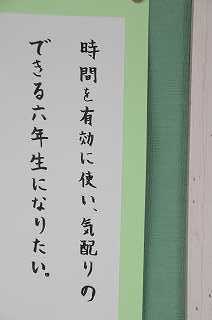 時間を有効に使い、気配りの
できる六年生になりたい。